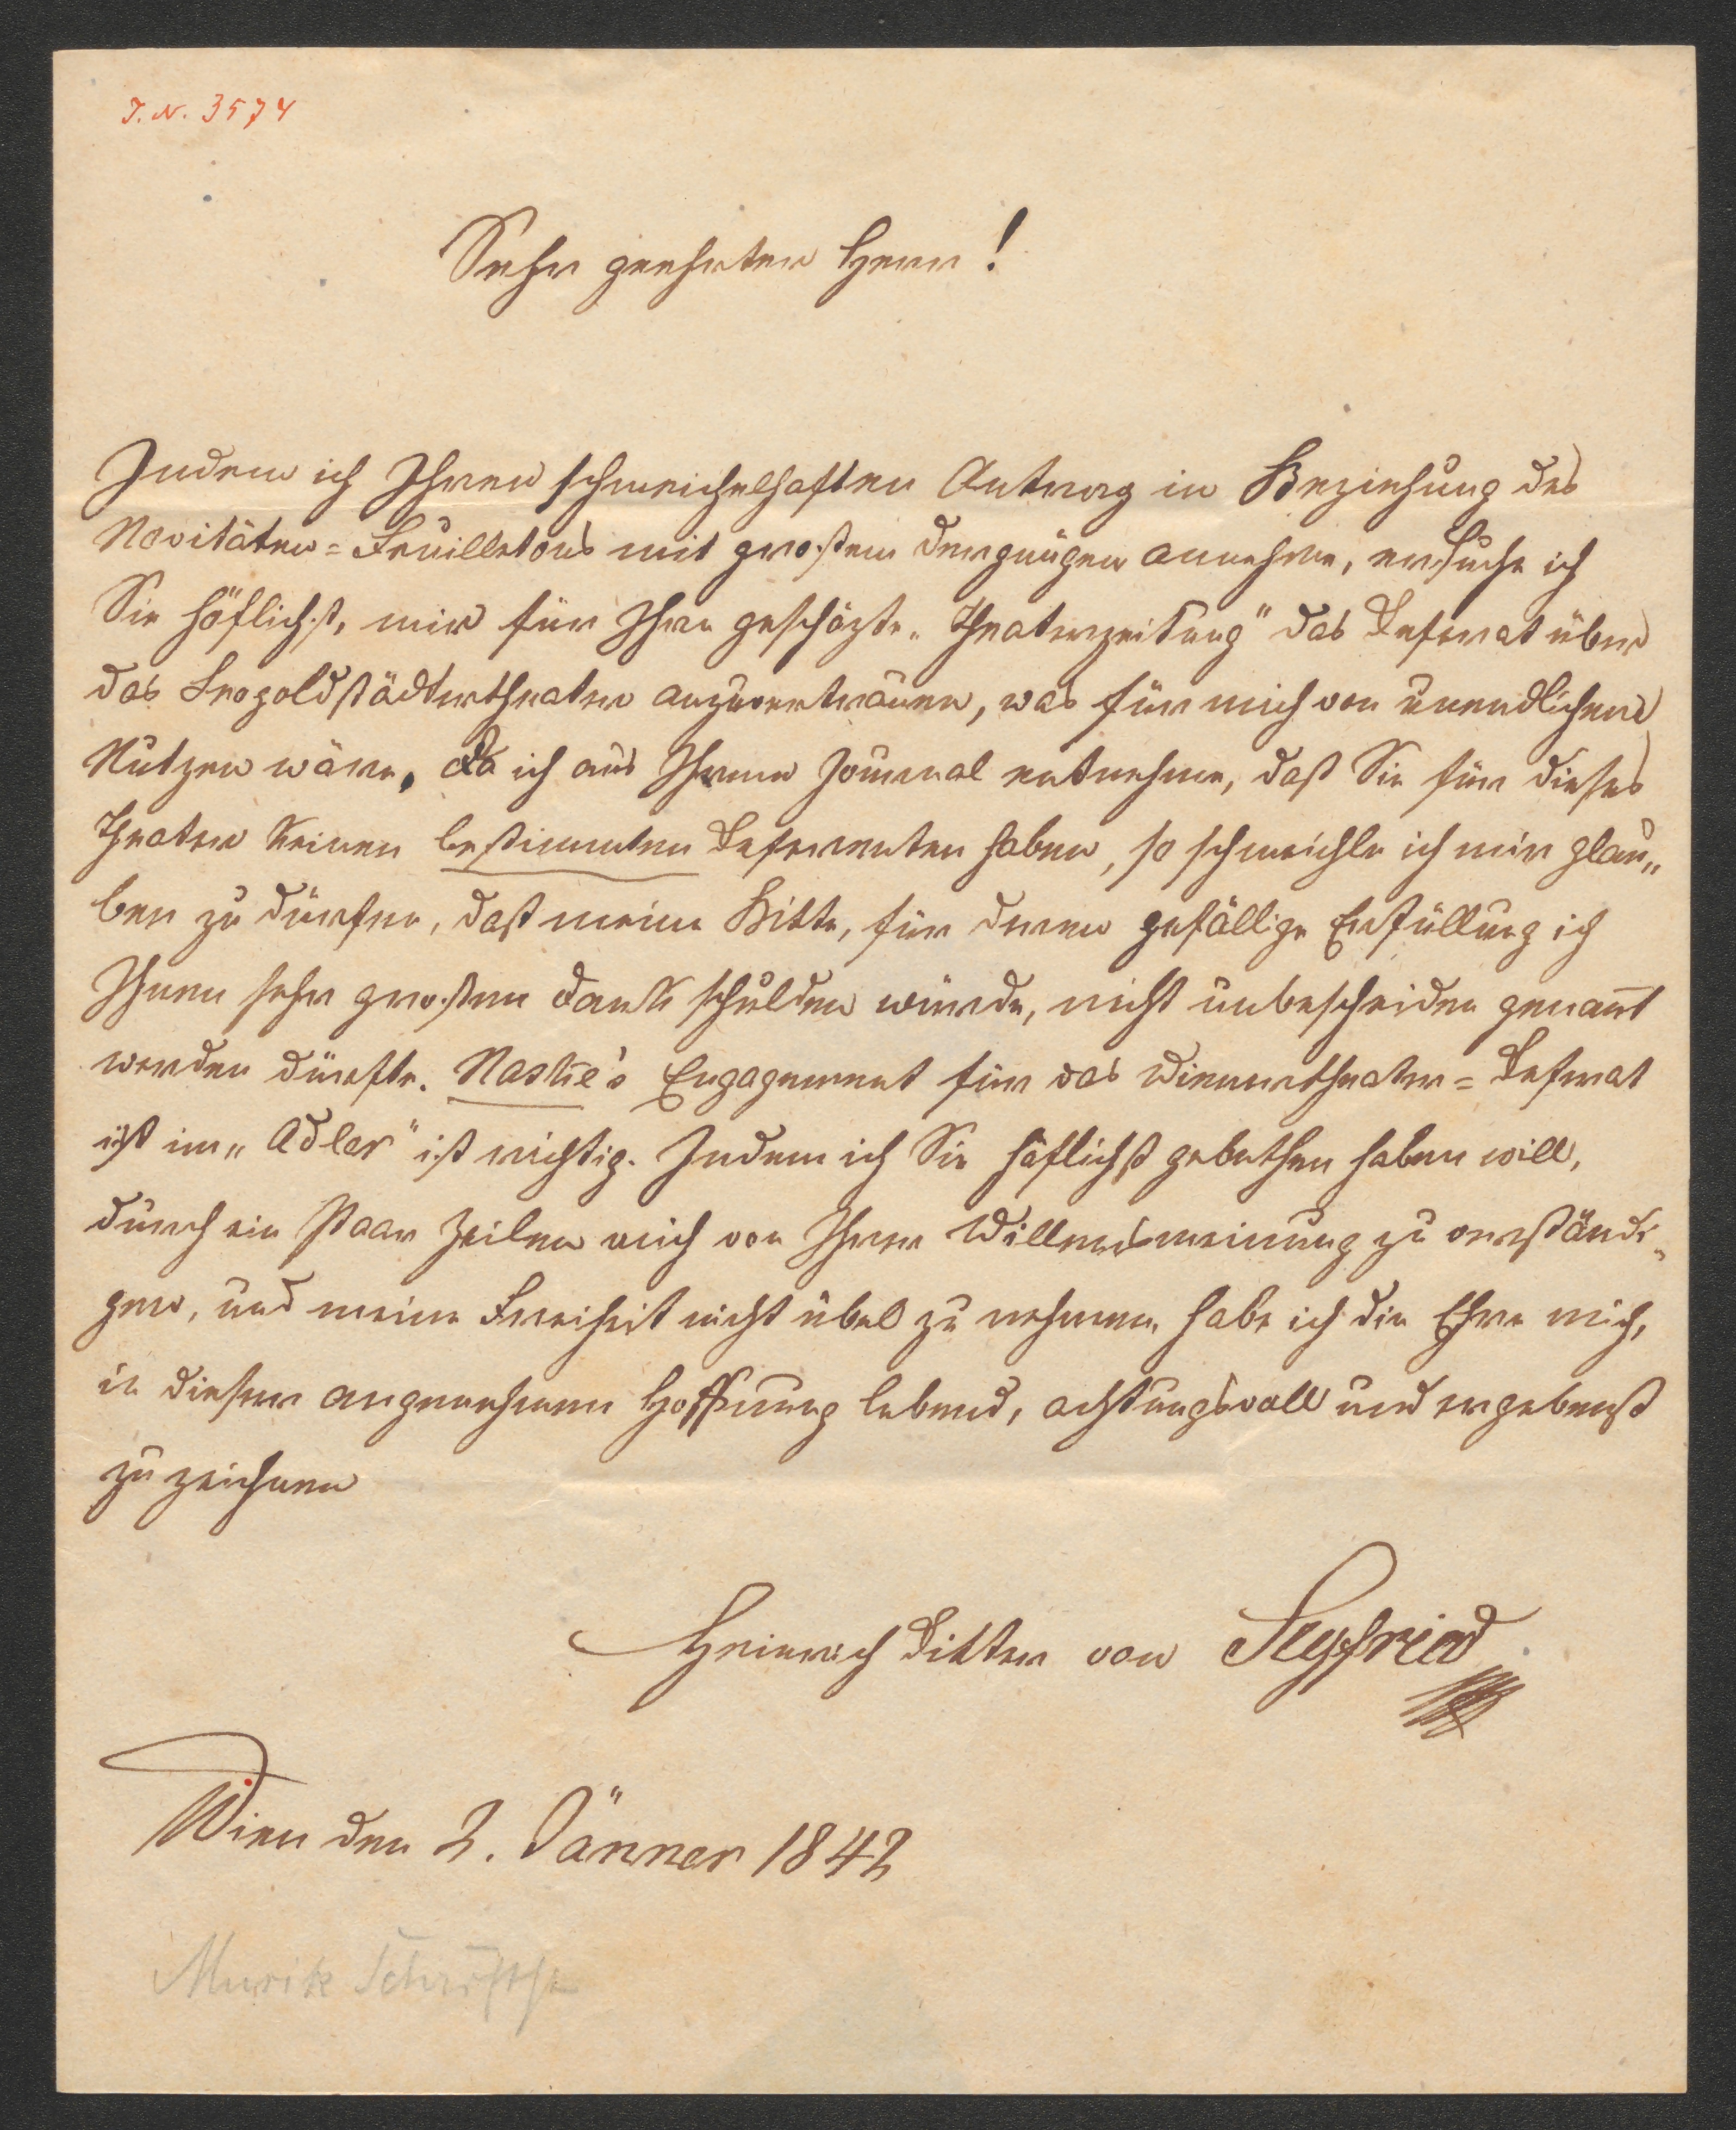 I. N. 3574
Sehr geehrter Herr!
Indem ich Ihren schmeichelhaften Antrag in Beziehung des
Novitäten=Feuilletons mit großem Vergnügen annehme, ersuche ich
Sie höflichst, mir für Ihre geschäzte „Theaterzeitung" das Referat über
das Leopoldstädtertheater anzuvertrauen, was für mich von unendlichem
Nutzen wäre. Da ich aus Ihrem Journal entnehme, daß Sie für dieses
Theater keinen bestimmten Referenten haben, so schmeichle ich mir glau„
ben zu dürfen, daß meine Bitte, für deren gefällige Erfüllung ich
Ihnen sehr großen Dank schulden würde, nicht unbescheiden genan̄t
werden dürfte. Naske's Engagement für das Wienertheater=Referat
ist im „Adler" ist richtig. Indem ich Sie höflichst gebethen haben will,
durch ein Paar Zeilen mich von Ihrer Willensmeinung zu verständi„
gen, und meine Freiheit nicht übel zu nehmen, habe ich die Ehre mich,
in dieser angenehmen Hoffnung lebend, achtungsvoll und ergebenst
zu zeichnen
Heinrich Ritter von Seyfried
Wien den 2. Jänner 1842
Musik Schriftst